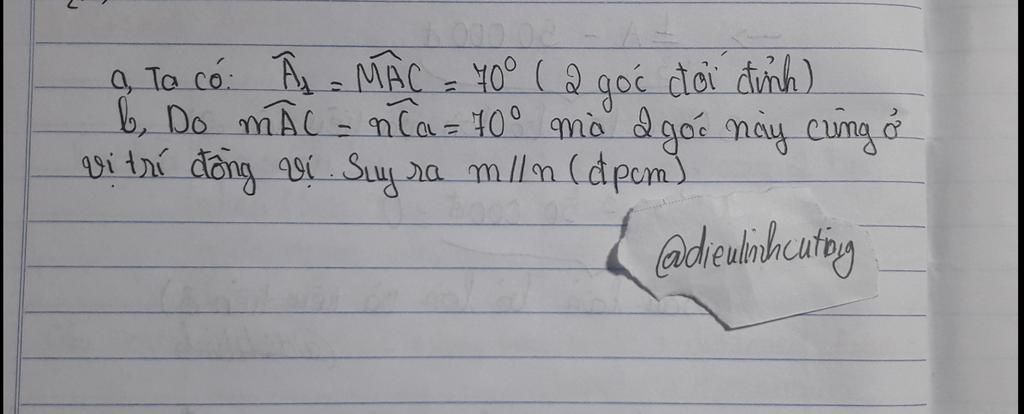 a, Ta có: Â₁ = M̂AC = 70° (2 góc đối đỉnh)
b, Do m̂AC = n̂Ca = 70° mà 2 góc này cùng ở
vị trí đồng vị. Suy ra m//n (đpcm)
@dieulinhcutiog